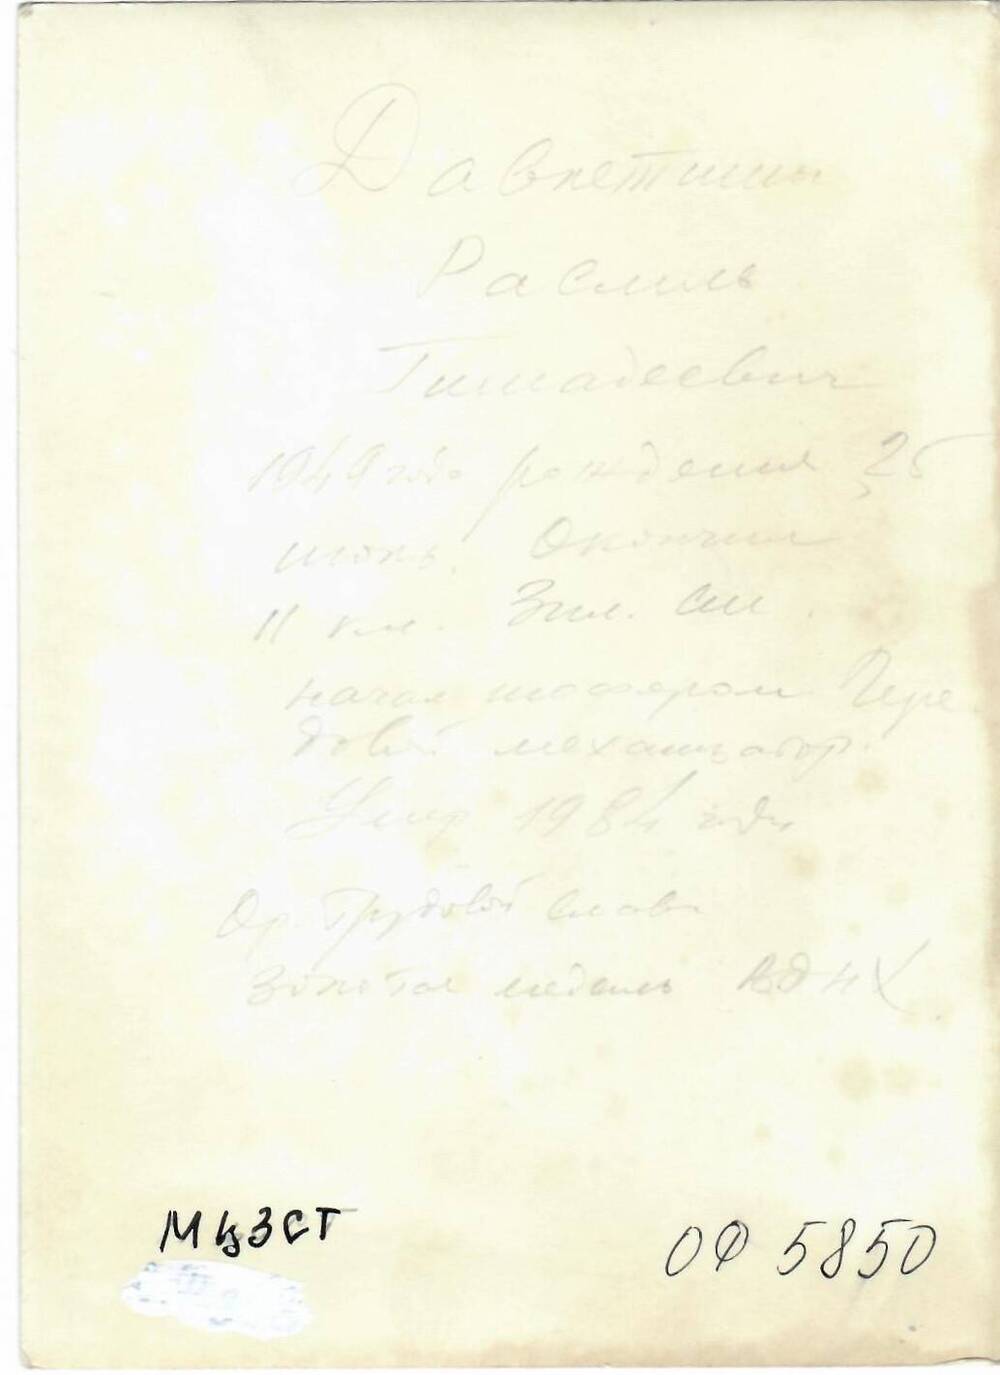 Давлетшин
Расмиль
Гимадеевич
1949 года рождения 25
июнь. Окончил
11 кл. Зил. СШ.
начал шофером Пере
довой механизатор.
Умер 1984 году
Ор. Трудовой слав
Золотая медаль ВДНХ.
МЦЗСТ
ОФ 5850